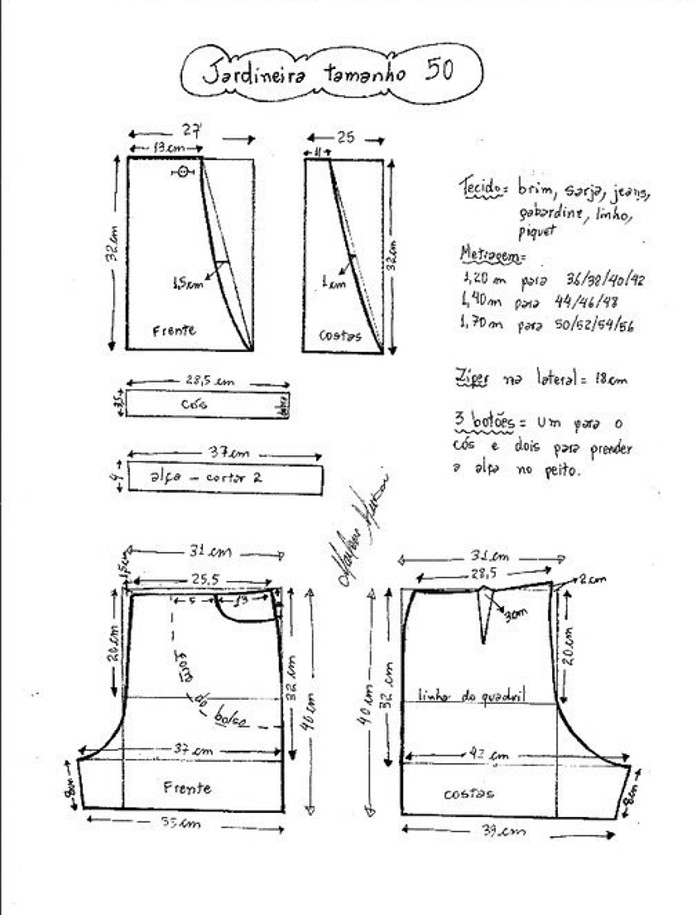 Jardineira tamanho 50
27
13 cm
32 cm
1,5 cm
Frente
25
11
32 cm
1 cm
costas
Tecido = brim, sarja, jeans,
gabardine, linho,
piquet
Metragem =
1,20 m para 36/38/40/42
1,40 m para 44/46/48
1,70 m para 50/52/54/56
Zíper na lateral = 18 cm
3 botões = um para o
cós e dois para prender
a alça no peito.
28,5 cm
3,5
cós
37 cm
4
alça - cortar 2
31 cm
25,5
5
13
20 cm
forro
do
bolso
32 cm
46 cm
37 cm
8 cm
Frente
31 cm
28,5
2 cm
3 cm
20 cm
40 cm
32 cm
linha do quadril
8 cm
costas
39 cm